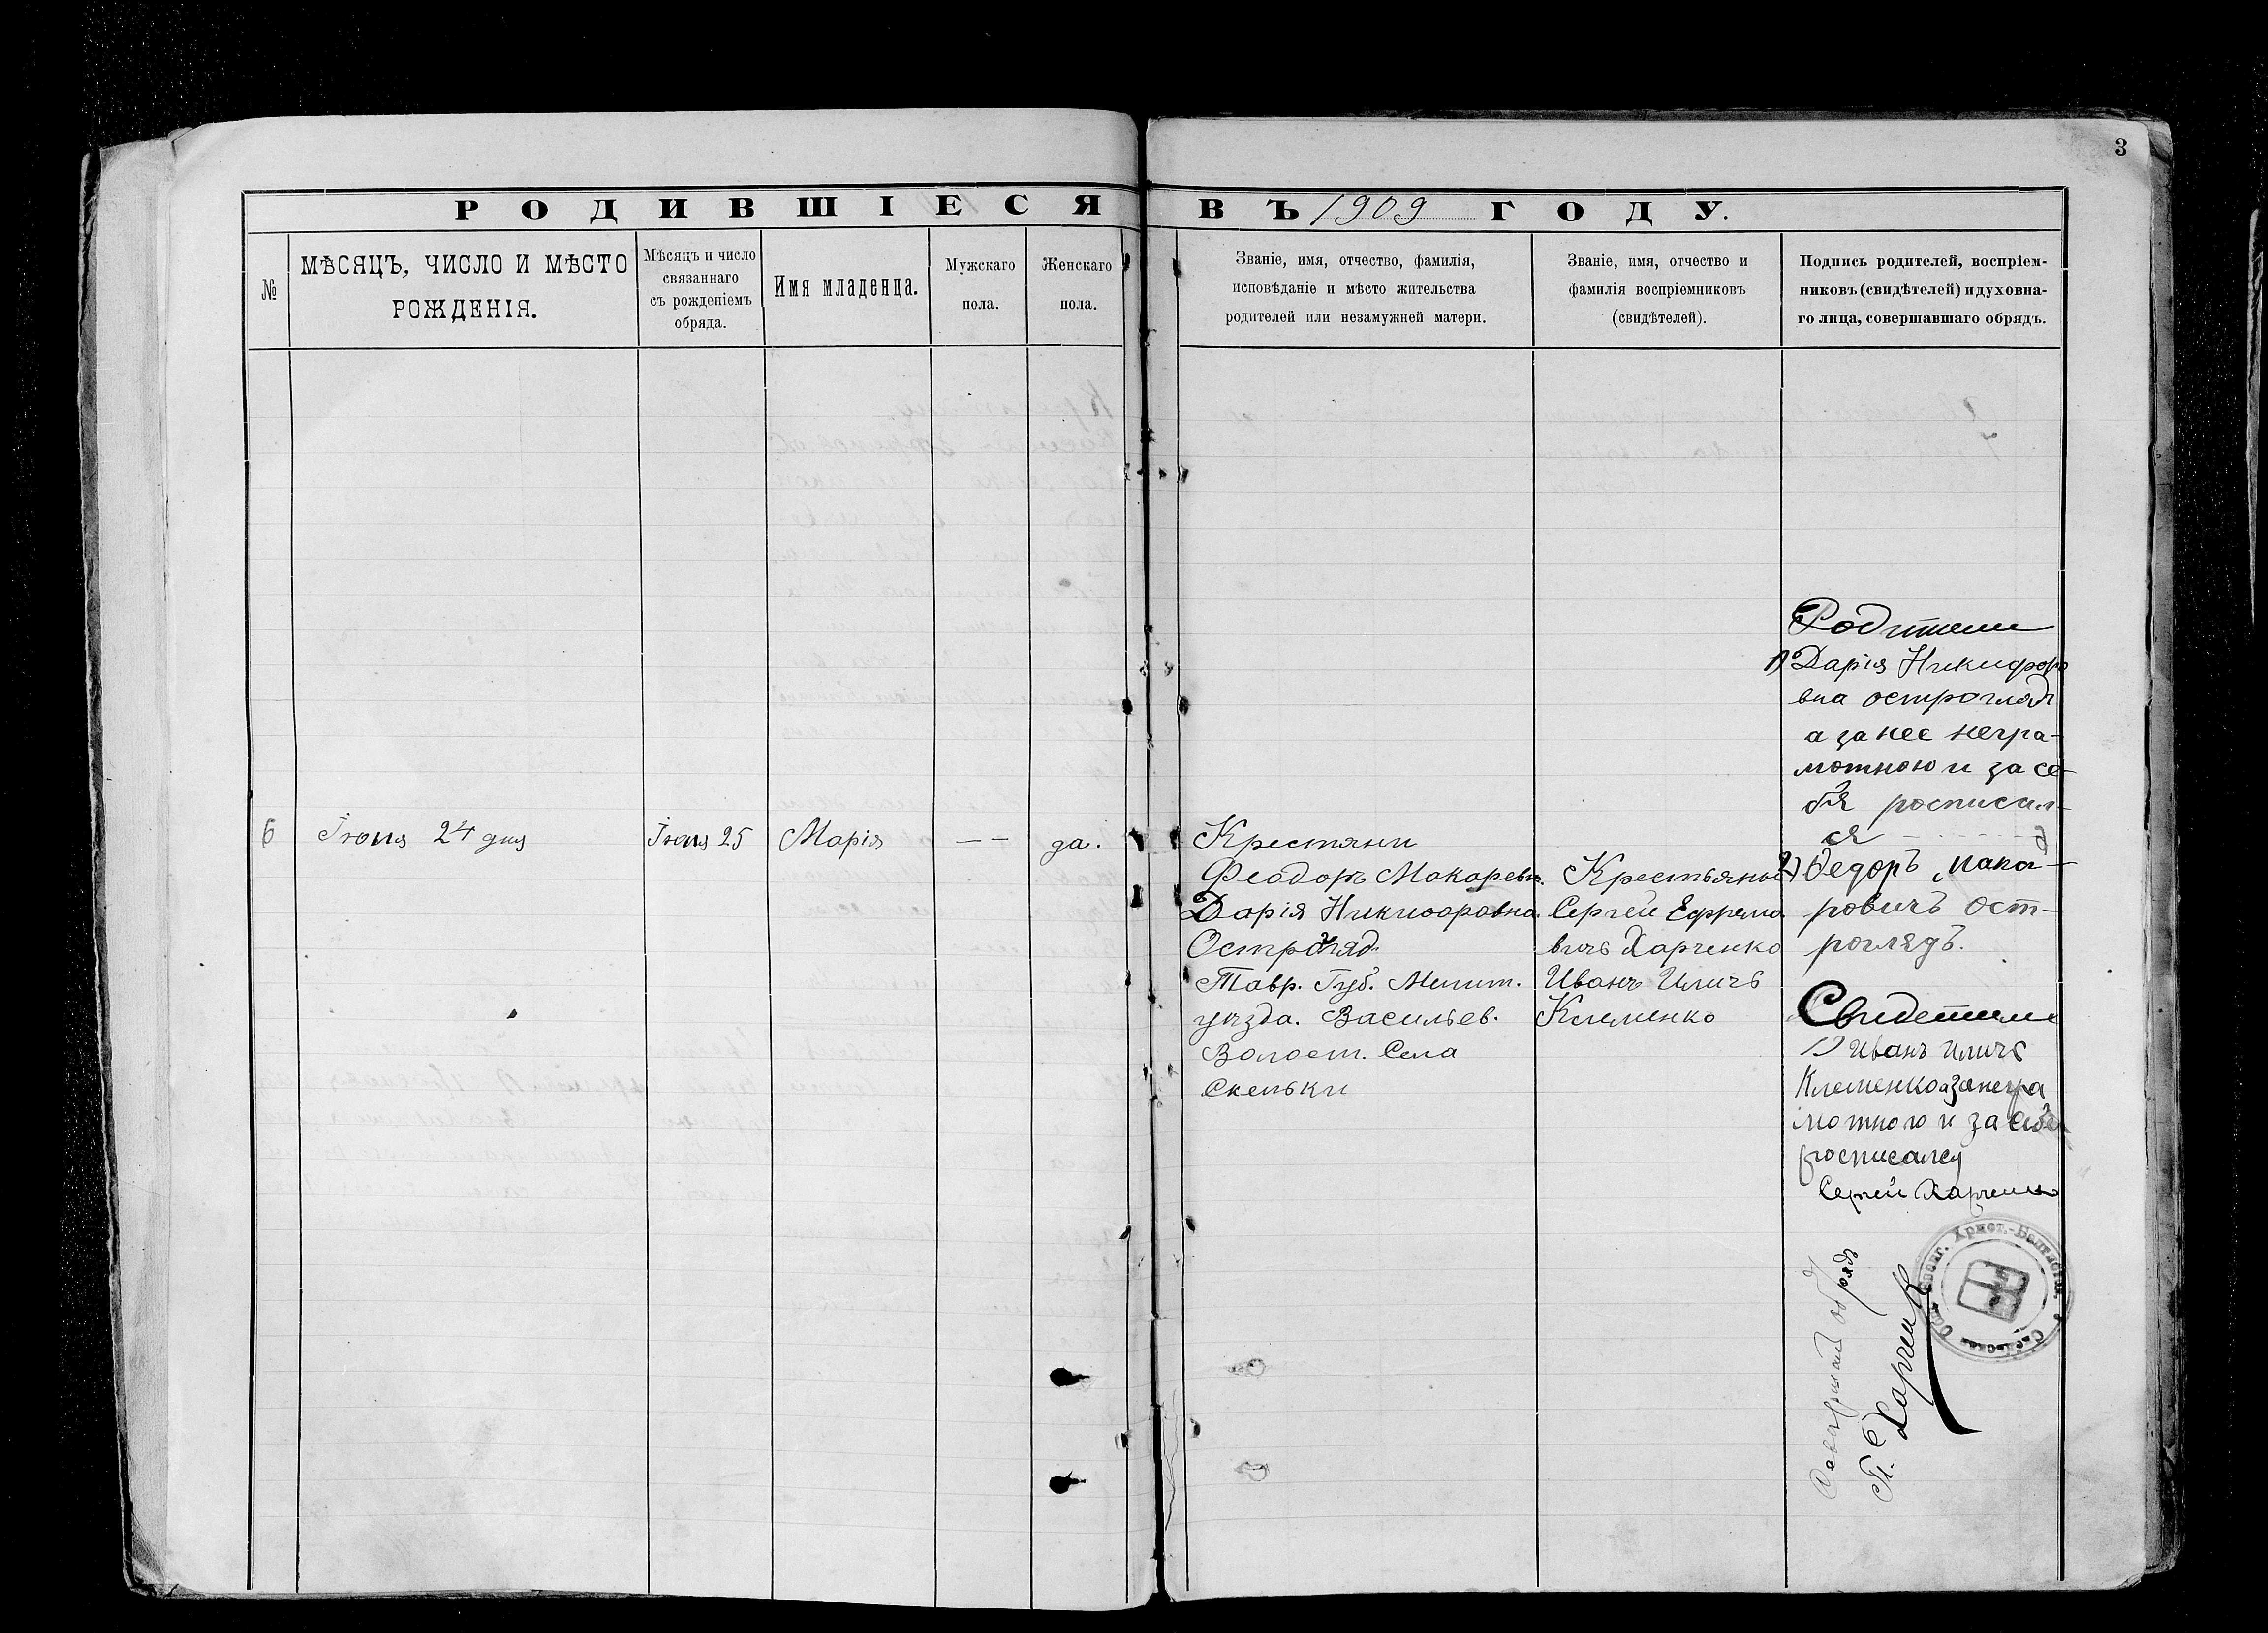 3
РОДИВШІЕСЯ ВЪ 1909 ГОДУ.
№
МѢСЯЦЪ, ЧИСЛО И МѢСТО
РОЖДЕНІЯ.
Мѣсяцъ и число
связаннаго
съ рожденіемъ
обряда.
Имя младенца.
Мужскаго
пола.
Женскаго
пола.
Званіе, имя, отчество, фамилія,
исповѣданіе и мѣсто жительства
родителей или незамужней матери.
Званіе, имя, отчество и
фамилія воспріемниковъ
(свидѣтелей).
Подпись родителей, воспріем-
никовъ (свидѣтелей) и духовна-
го лица, совершавшаго обрядъ.
6
Іюня 24 дня
Іюня 25
Марія
— —
да.
Крестяни
Феодоръ Макаревъ.
Дарія Никифоровна.
Остроглад
Тавр. Губ. Мелит.
уѣзда. Васильев.
Волост. Села
Скельки
Крестьяне
Сергей Ефремо
вичъ Харченко
Иванъ Иличъ
Клеменко
Родители
1) Дарія Никифоро
вна остроглядъ
а за нее негра-
мотною и за се-
бя росписал-
ся
2) Федоръ Мака-
ровичъ ост-
роглядъ.
Свидетели
1) Иванъ Иличъ
Клеменко а за негра
мотного и за себя
росписался
Сергей Харченко
Совершал обрядъ
П. Е. Харченко
Христ.-Баптистъ